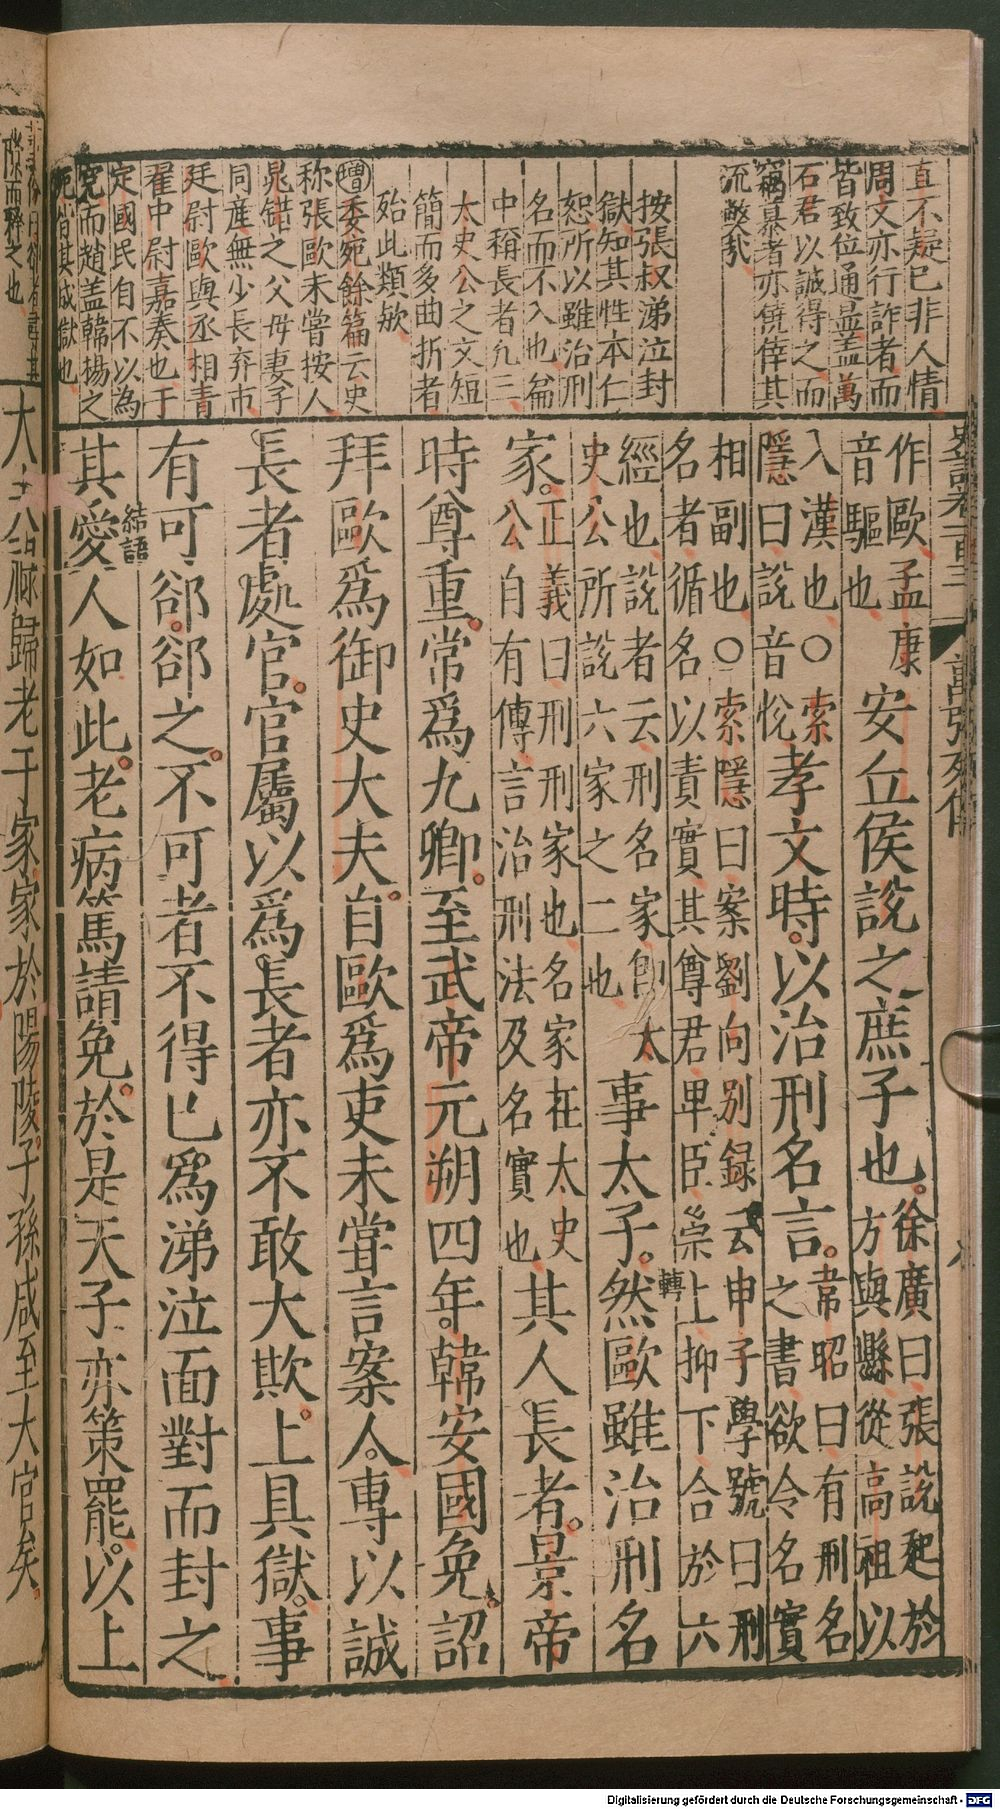 直不疑已非人情
周文亦行詐者而
皆致位通顯蓋萬
石君以誠得之而
竊慕者亦僥倖其
流弊哉
按張叔涕泣封
獄知其性本仁
恕所以雖治刑
名而不入也篇
中稱長者凡三
太史公之文短
簡而多曲折者
殆此類歟
增委宛餘篇云史
稱張歐未嘗按人
晁錯之父母妻子
同産無少長弃市
廷尉歐與丞相青
翟中尉嘉奏也于
定國民自不以為
寃而趙盖韓揚之
死皆其成獄也
史記卷一百三 萬張列傳
作歐孟康
音驅也
安丘侯說之庶子也
徐廣曰張說起於
方與縣從高祖以
入漢也○索
隱曰說音悅
孝文時以治刑名言
韋昭曰有刑名
之書欲令名實
相副也○索隱曰案劉向別録云申子學號曰刑
名者循名以責實其尊君卑臣崇上抑下合於六
經也說者云刑名家即太
史公所說六家之二也
事太子然歐雖治刑名
轉
家
正義曰刑刑家也名家在太史
公自有傳言治刑法及名實也
其人長者景帝
時尊重常爲九卿至武帝元朔四年韓安國免詔
拜歐爲御史大夫自歐爲吏未甞言案人專以誠
長者處官官屬以爲長者亦不敢大欺上具獄事
有可郤郤之不可者不得已爲涕泣面對而封之
結語
其愛人如此老病篤請免於是天子亦策罷以上
而釋之也
大夫祿歸老于家家於陽陵子孫咸至大官矣
Digitalisierung gefördert durch die Deutsche Forschungsgemeinschaft - DFG